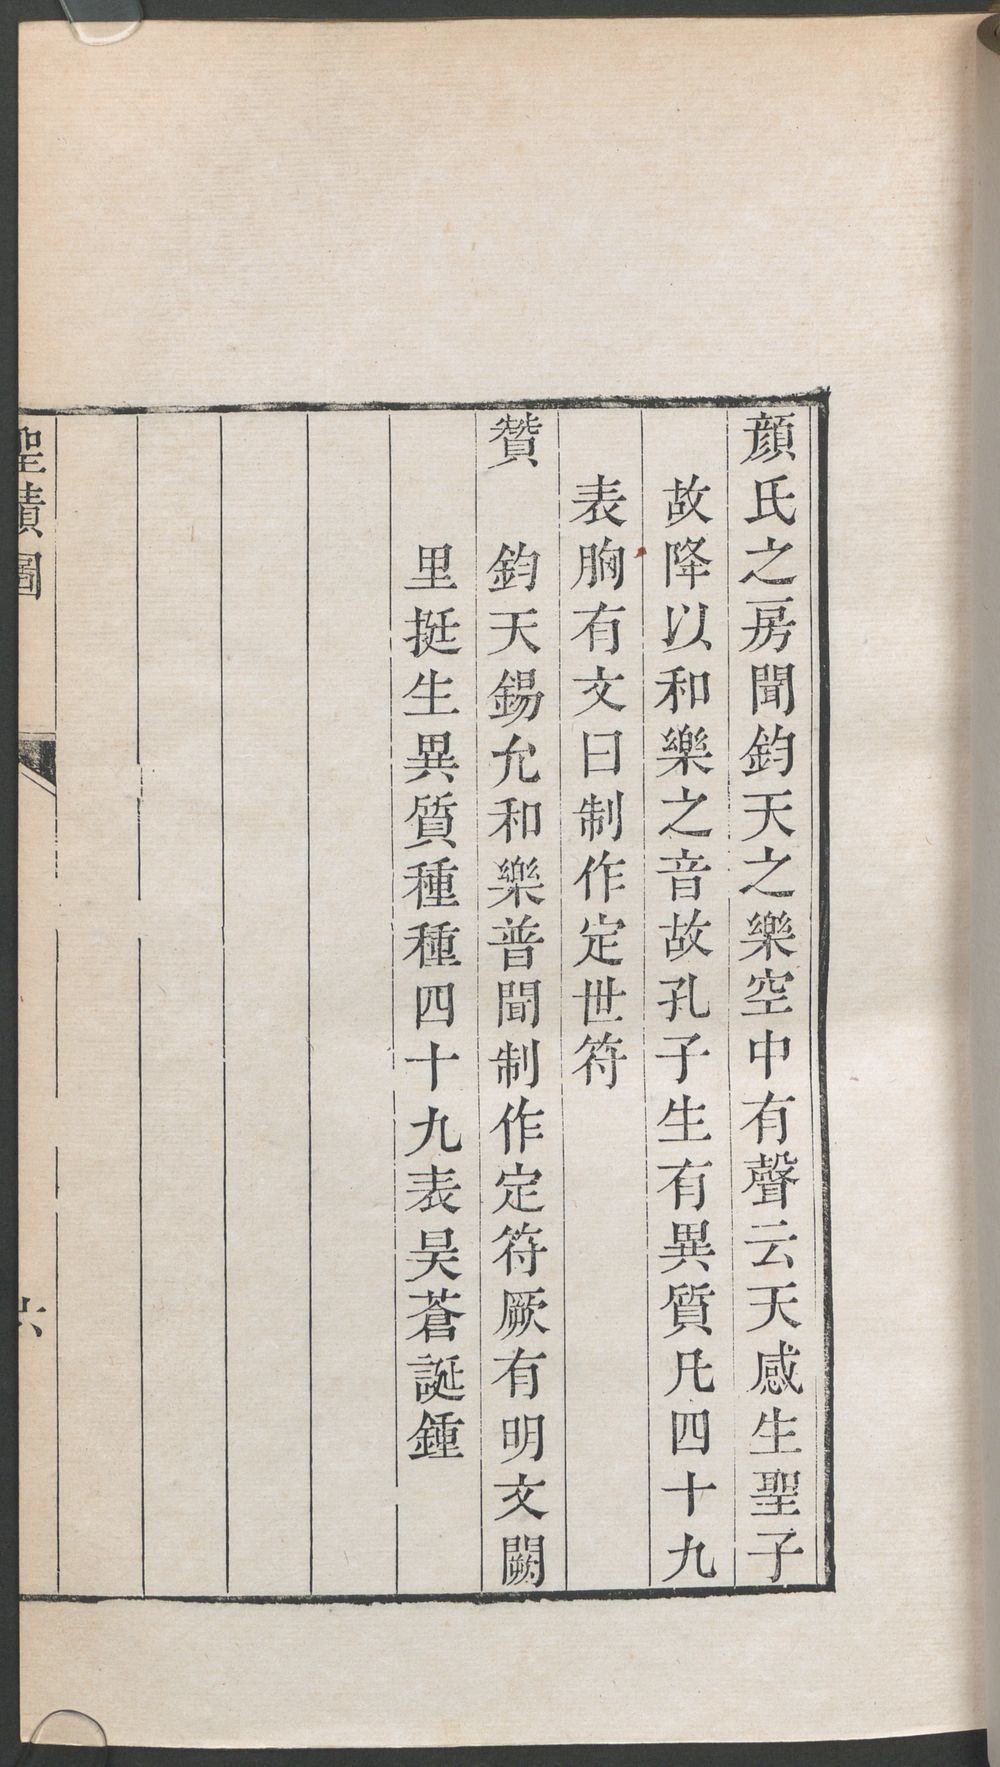 顏氏之房聞鈞天之樂空中有聲云天感生聖子
故降以和樂之音故孔子生有異質凡四十九
表胸有文曰制作定世符
贊 鈞天錫允和樂普聞制作定符厥有明文闕
里挺生異質種種四十九表昊蒼誕鍾
聖蹟圖
六